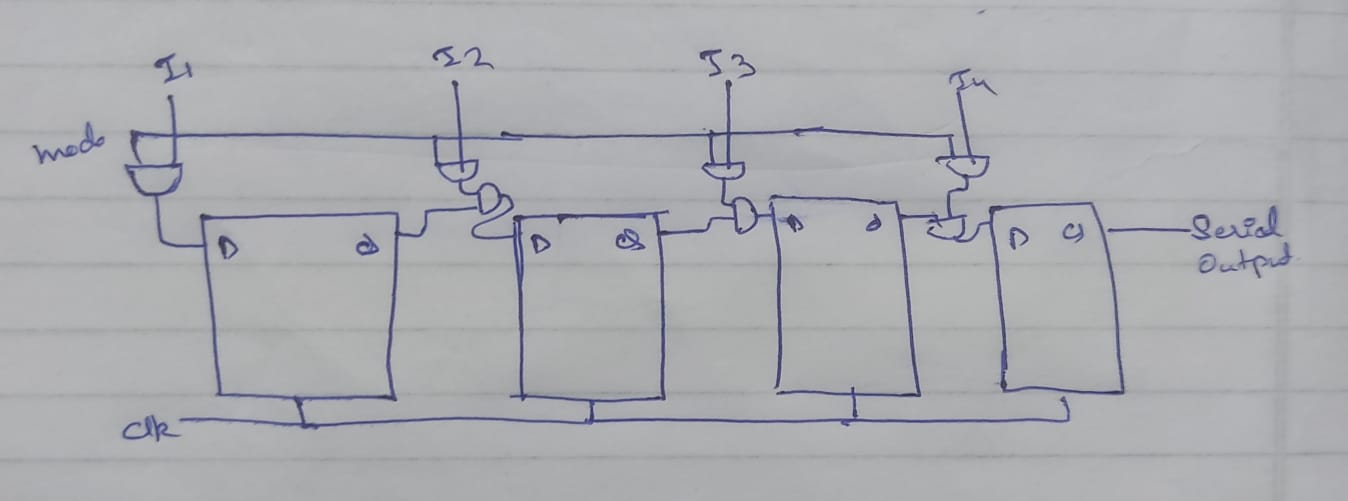 I1 I2 I3 I4
mode
D Q D Q D Q D Q
Serial
Output
Clk